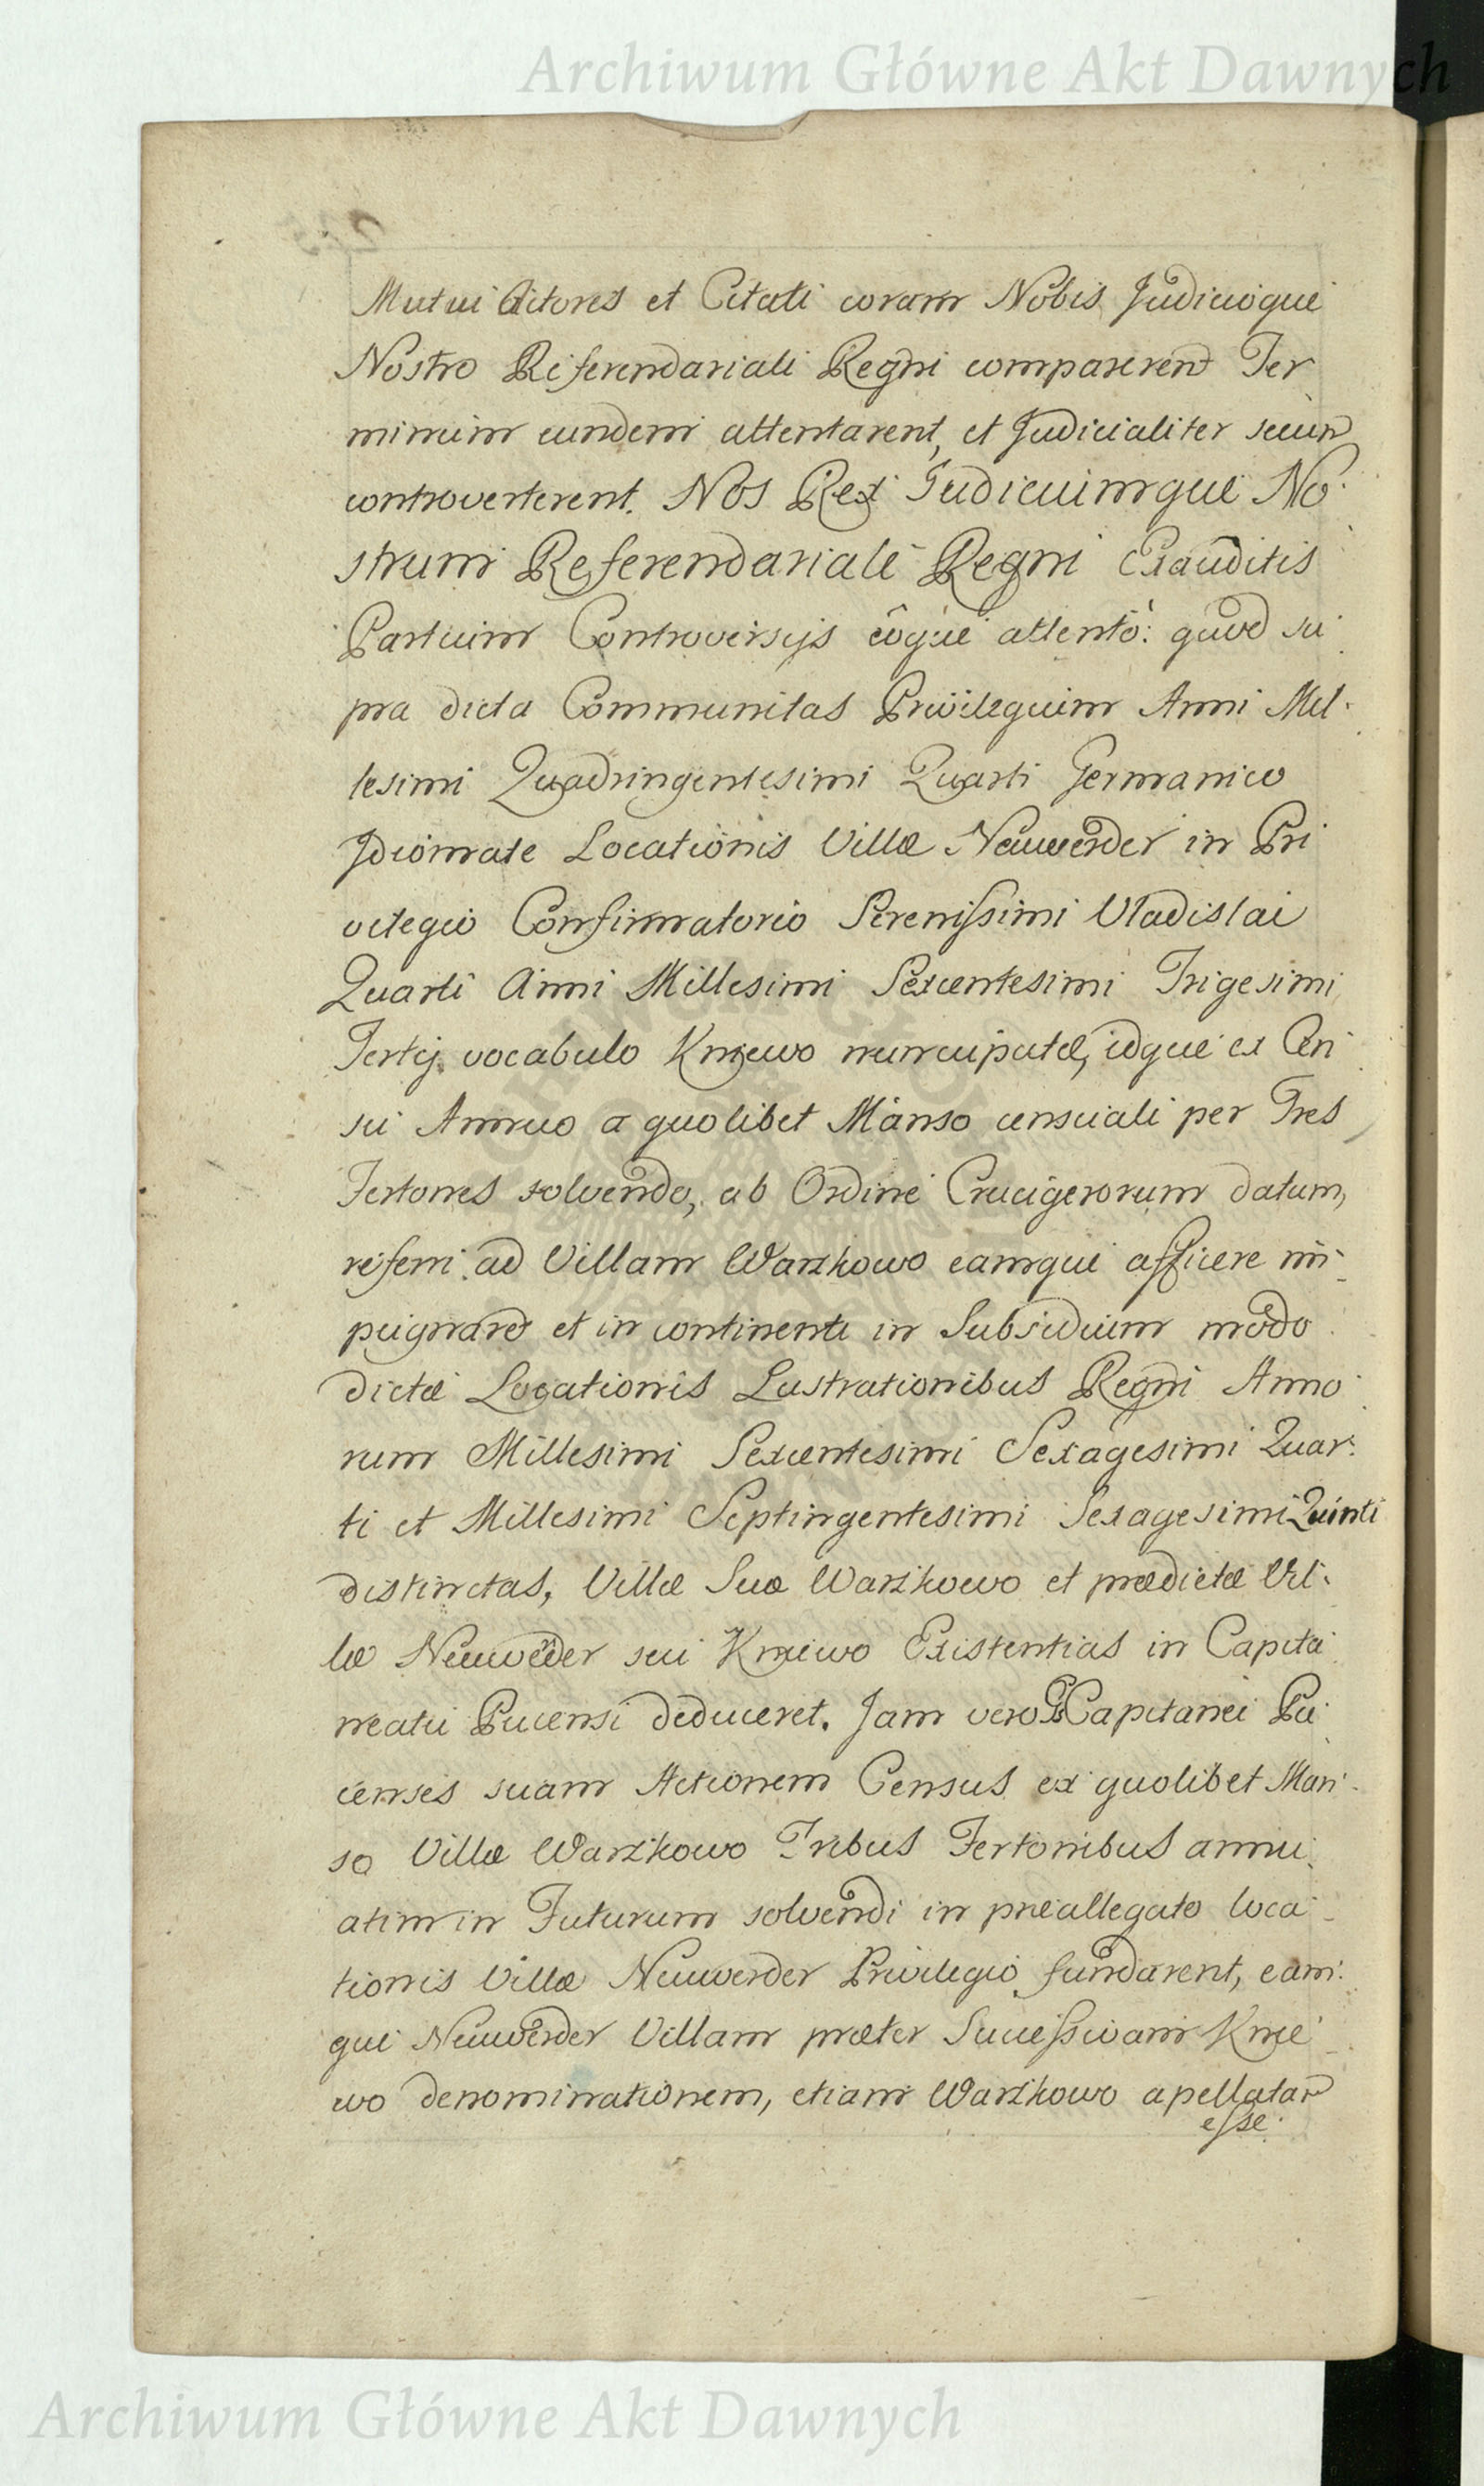 Archiwum Główne Akt Dawnych
Mutui Actores et Citati coram Nobis Judicioque
Nostro Referendariali Regni comparerent Ter
minum eundem attentarent, et Judicialiter secum
controverterent. Nos Rex Judiciumque No
strum Referendariale Regni Exauditis
Partium Controversijs eôque attentò: quod su
pra dicta Communitas Privilegium Anni Mil-
lesimi Quadringentesimi Quarti Germanico
Idiomate Locationis Villæ Neuwerder in Pri
vilegio Confirmatorio Serenissimi Vladislai
Quarti Anni Millesimi Sexcentesimi Trigesimi
Tertij vocabulo Kniewo nuncupatæ, idque ex Cen
su Annuo a quolibet Manso censuali per Tres
Fertones solvendo, ab Ordine Crucigerorum datum,
referri ad Villam Warzkowo eamque afficere im-
pugnaret et in continenti in Subsidium modo
dictæ Locationis Lustrationibus Regni Anno
rum Millesimi Sexcentesimi Sexagesimi Quar-
ti et Millesimi Septingentesimi Sexagesimi Quinti
distinctas, Villæ Suæ Warzkowo et prædictæ Vil-
læ Neuweder seu Kniewo Existentias in Capita
neatu Pucensi deduceret. Jam vero GCapitanei Pu
censes suam Actionem Census ex quolibet Man-
so Villæ Warzkowo Tribus Fertonibus annu
atim in Futurum solvendi in præallegato loca-
tionis Villæ Neuwerder Privilegio fundarent, eam-
que Neuwerder Villam præter Successivam Knie
wo denominationem, etiam Warzkowo apellatam
esse.
Archiwum Główne Akt Dawnych